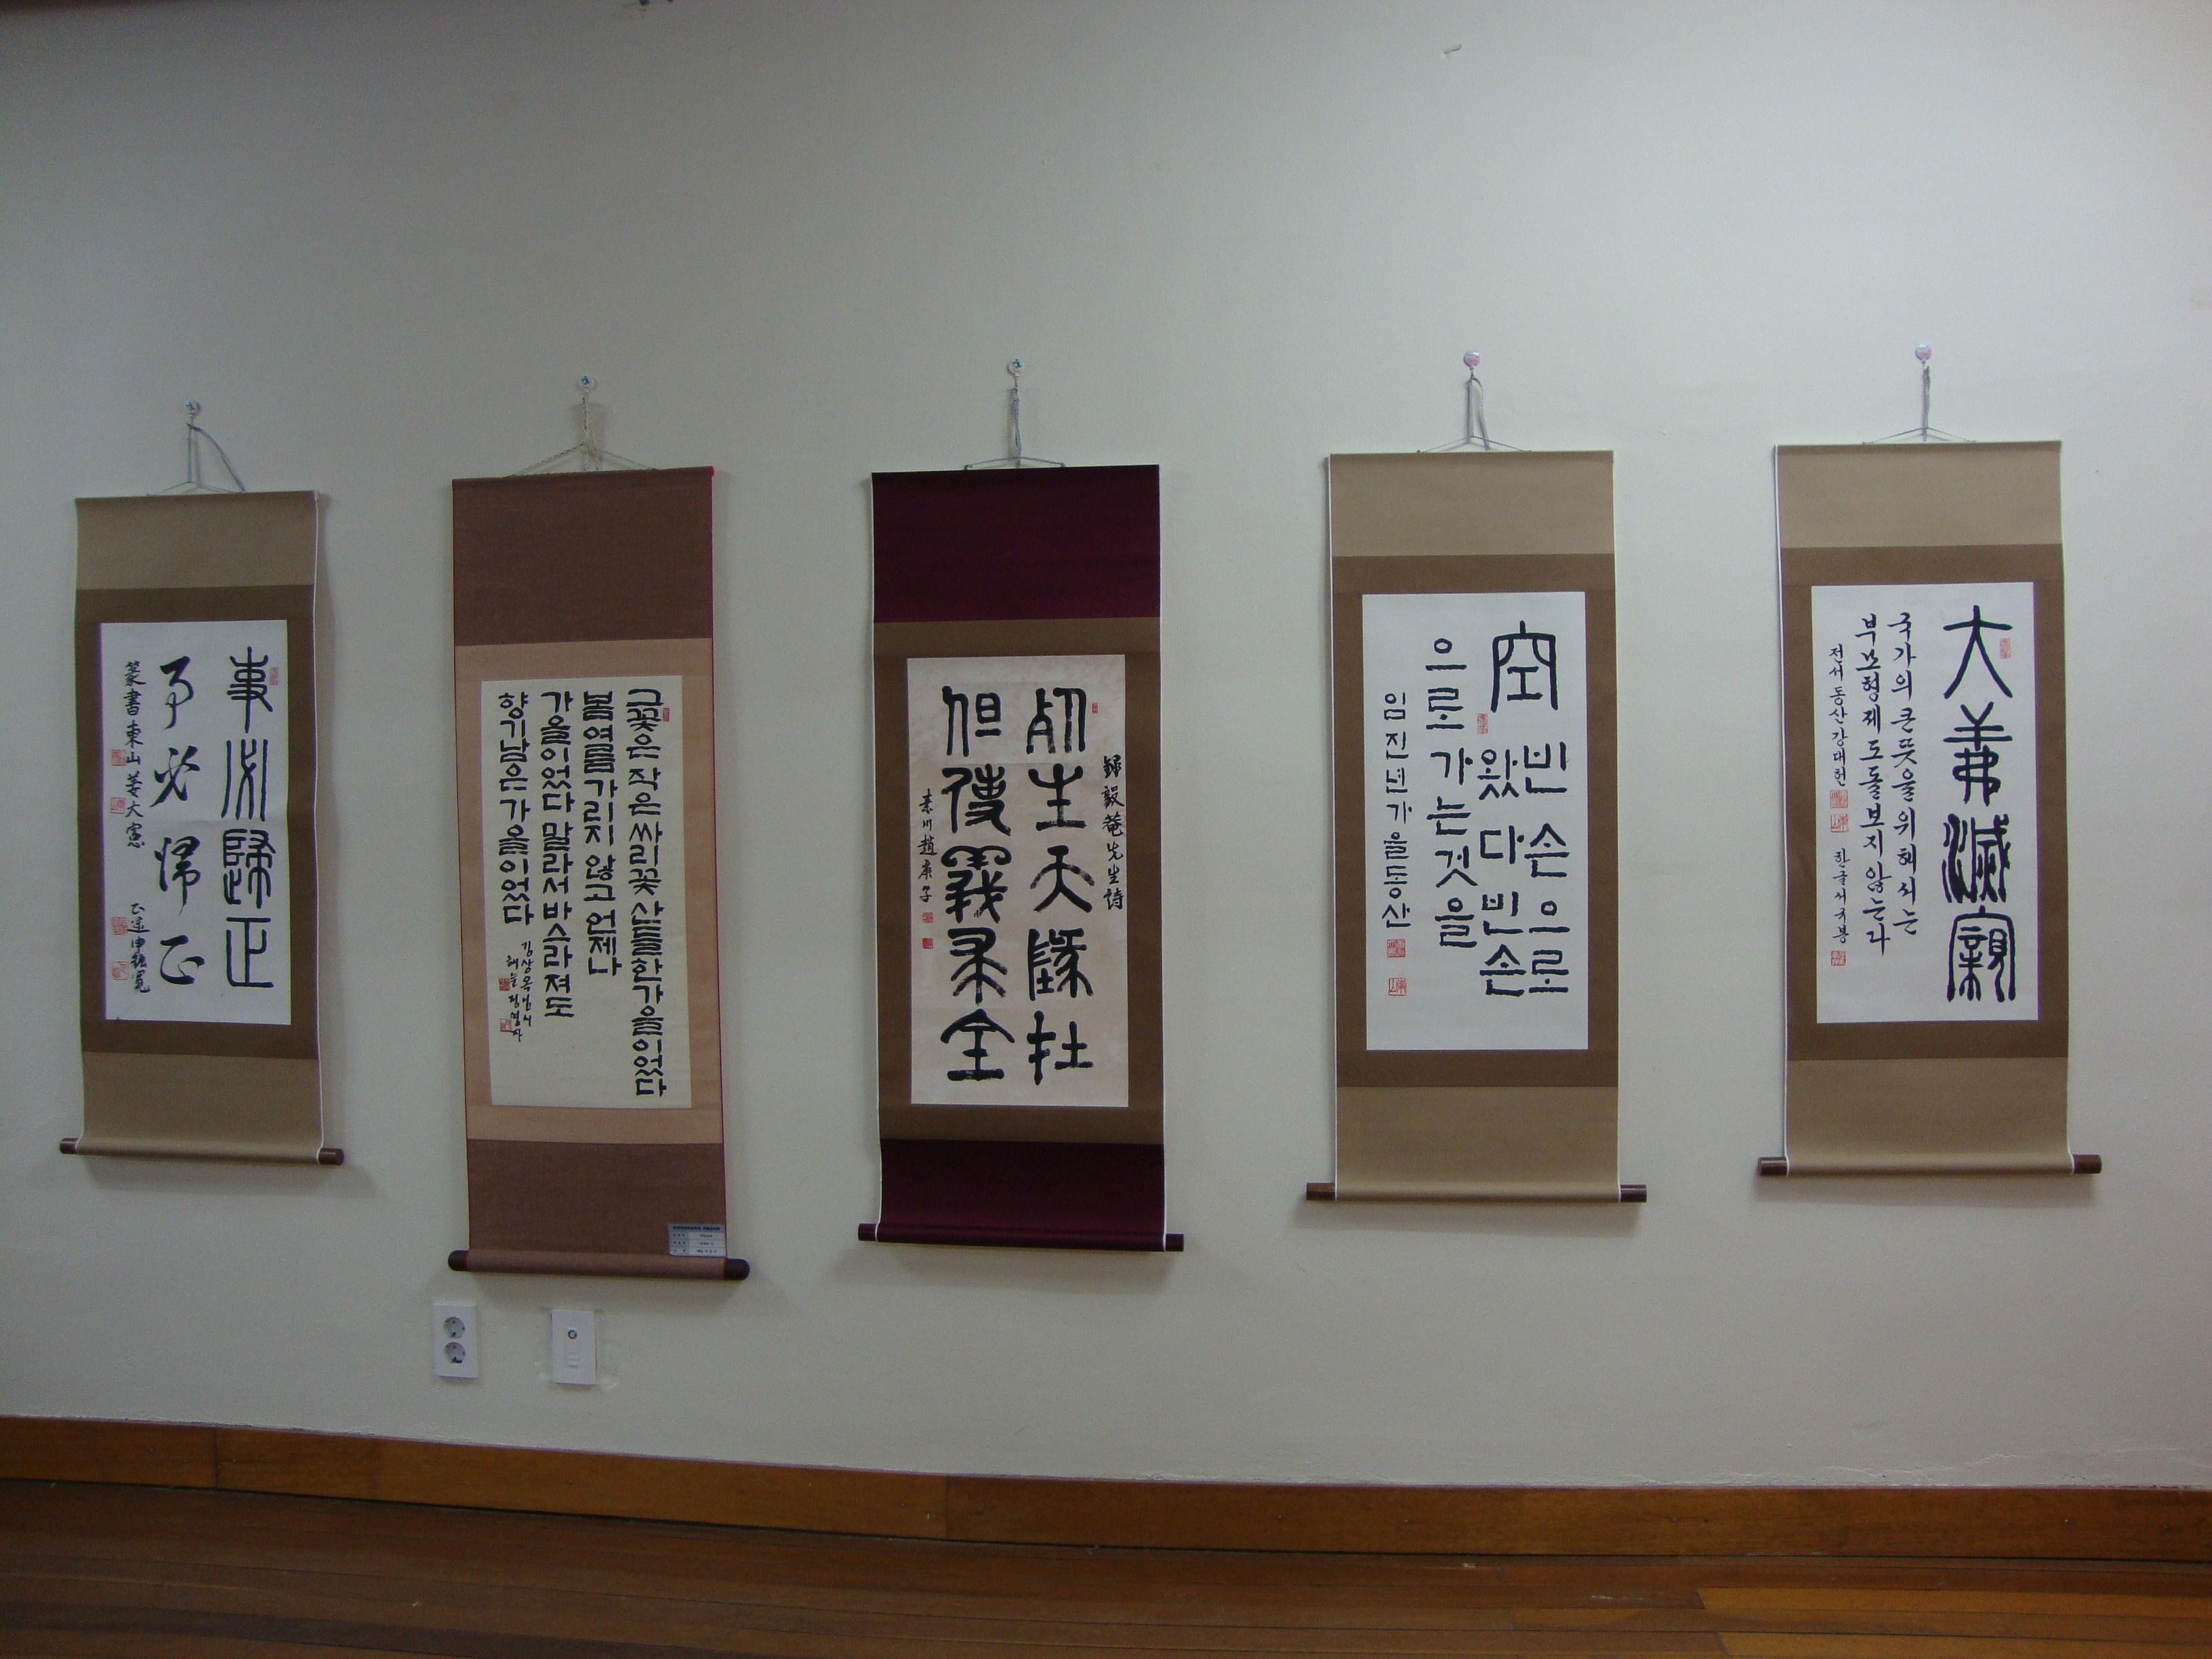 事必歸正
事必歸正
篆書 東山 姜大憲
그꽃은 작은 싸리꽃 산들한 가을이었다
봄 여름 가리지 않고 언제나
가을이었다 말라서 바스라져도
향기남은 가을이었다
김상옥님시
해늘 정명자
毅菴先生詩
生天
但使義全
素川趙庚子
空 빈손으로
왔다 빈손
으로 가는것을
임진년가을동산
大義滅親
국가의 큰 뜻을 위해서는
부모형제도 돌보지 않는다
전서 동산 강대헌 한글 서국봉